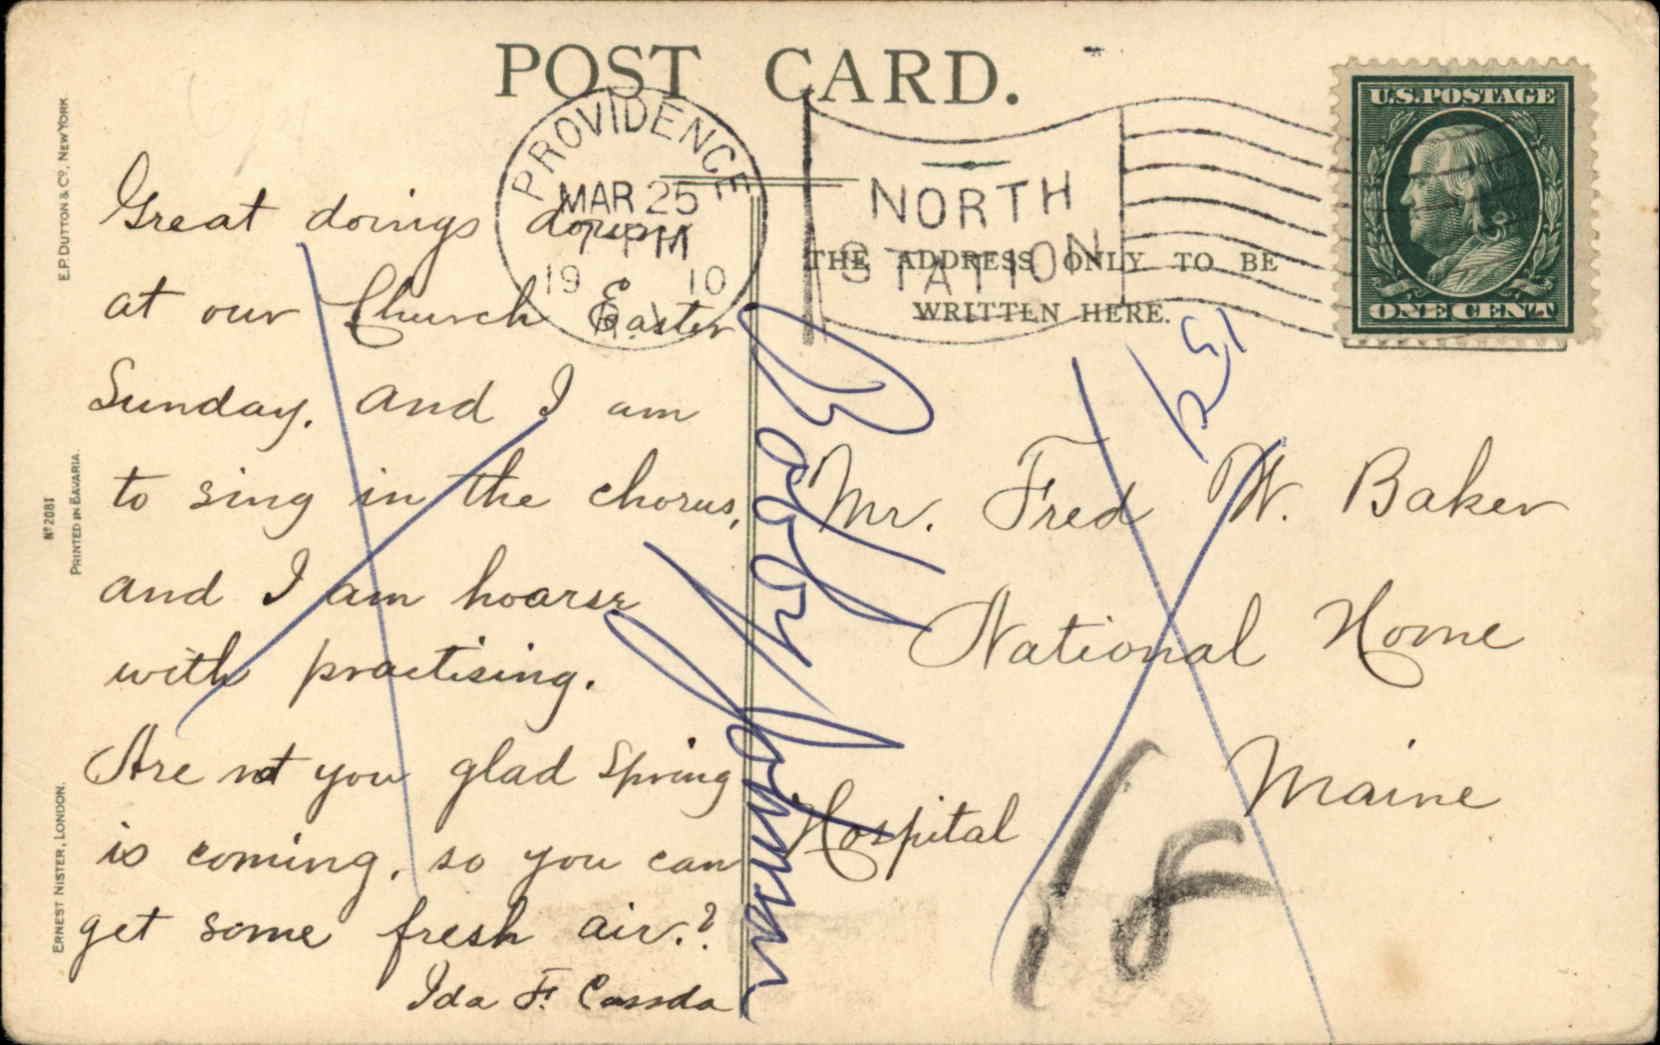 POST CARD.
PROVIDENCE
MAR 25
7 PM
19 10
R.I.
NORTH
STATION
U.S. POSTAGE
ONE CENT
THE ADDRESS ONLY TO BE
WRITTEN HERE.
Great doings down
at our Church Easter
Sunday, and I am
to sing in the chorus,
and I am hoarse
with practising.
Are not you glad Spring
is coming, so you can
get some fresh air.?
Ida F.
Mr. Fred W. Baker
National Home
Maine
Hospital
18
Bobby
E.P. DUTTON & CO. NEW YORK
No 2081
PRINTED IN BAVARIA.
ERNEST NISTER, LONDON.